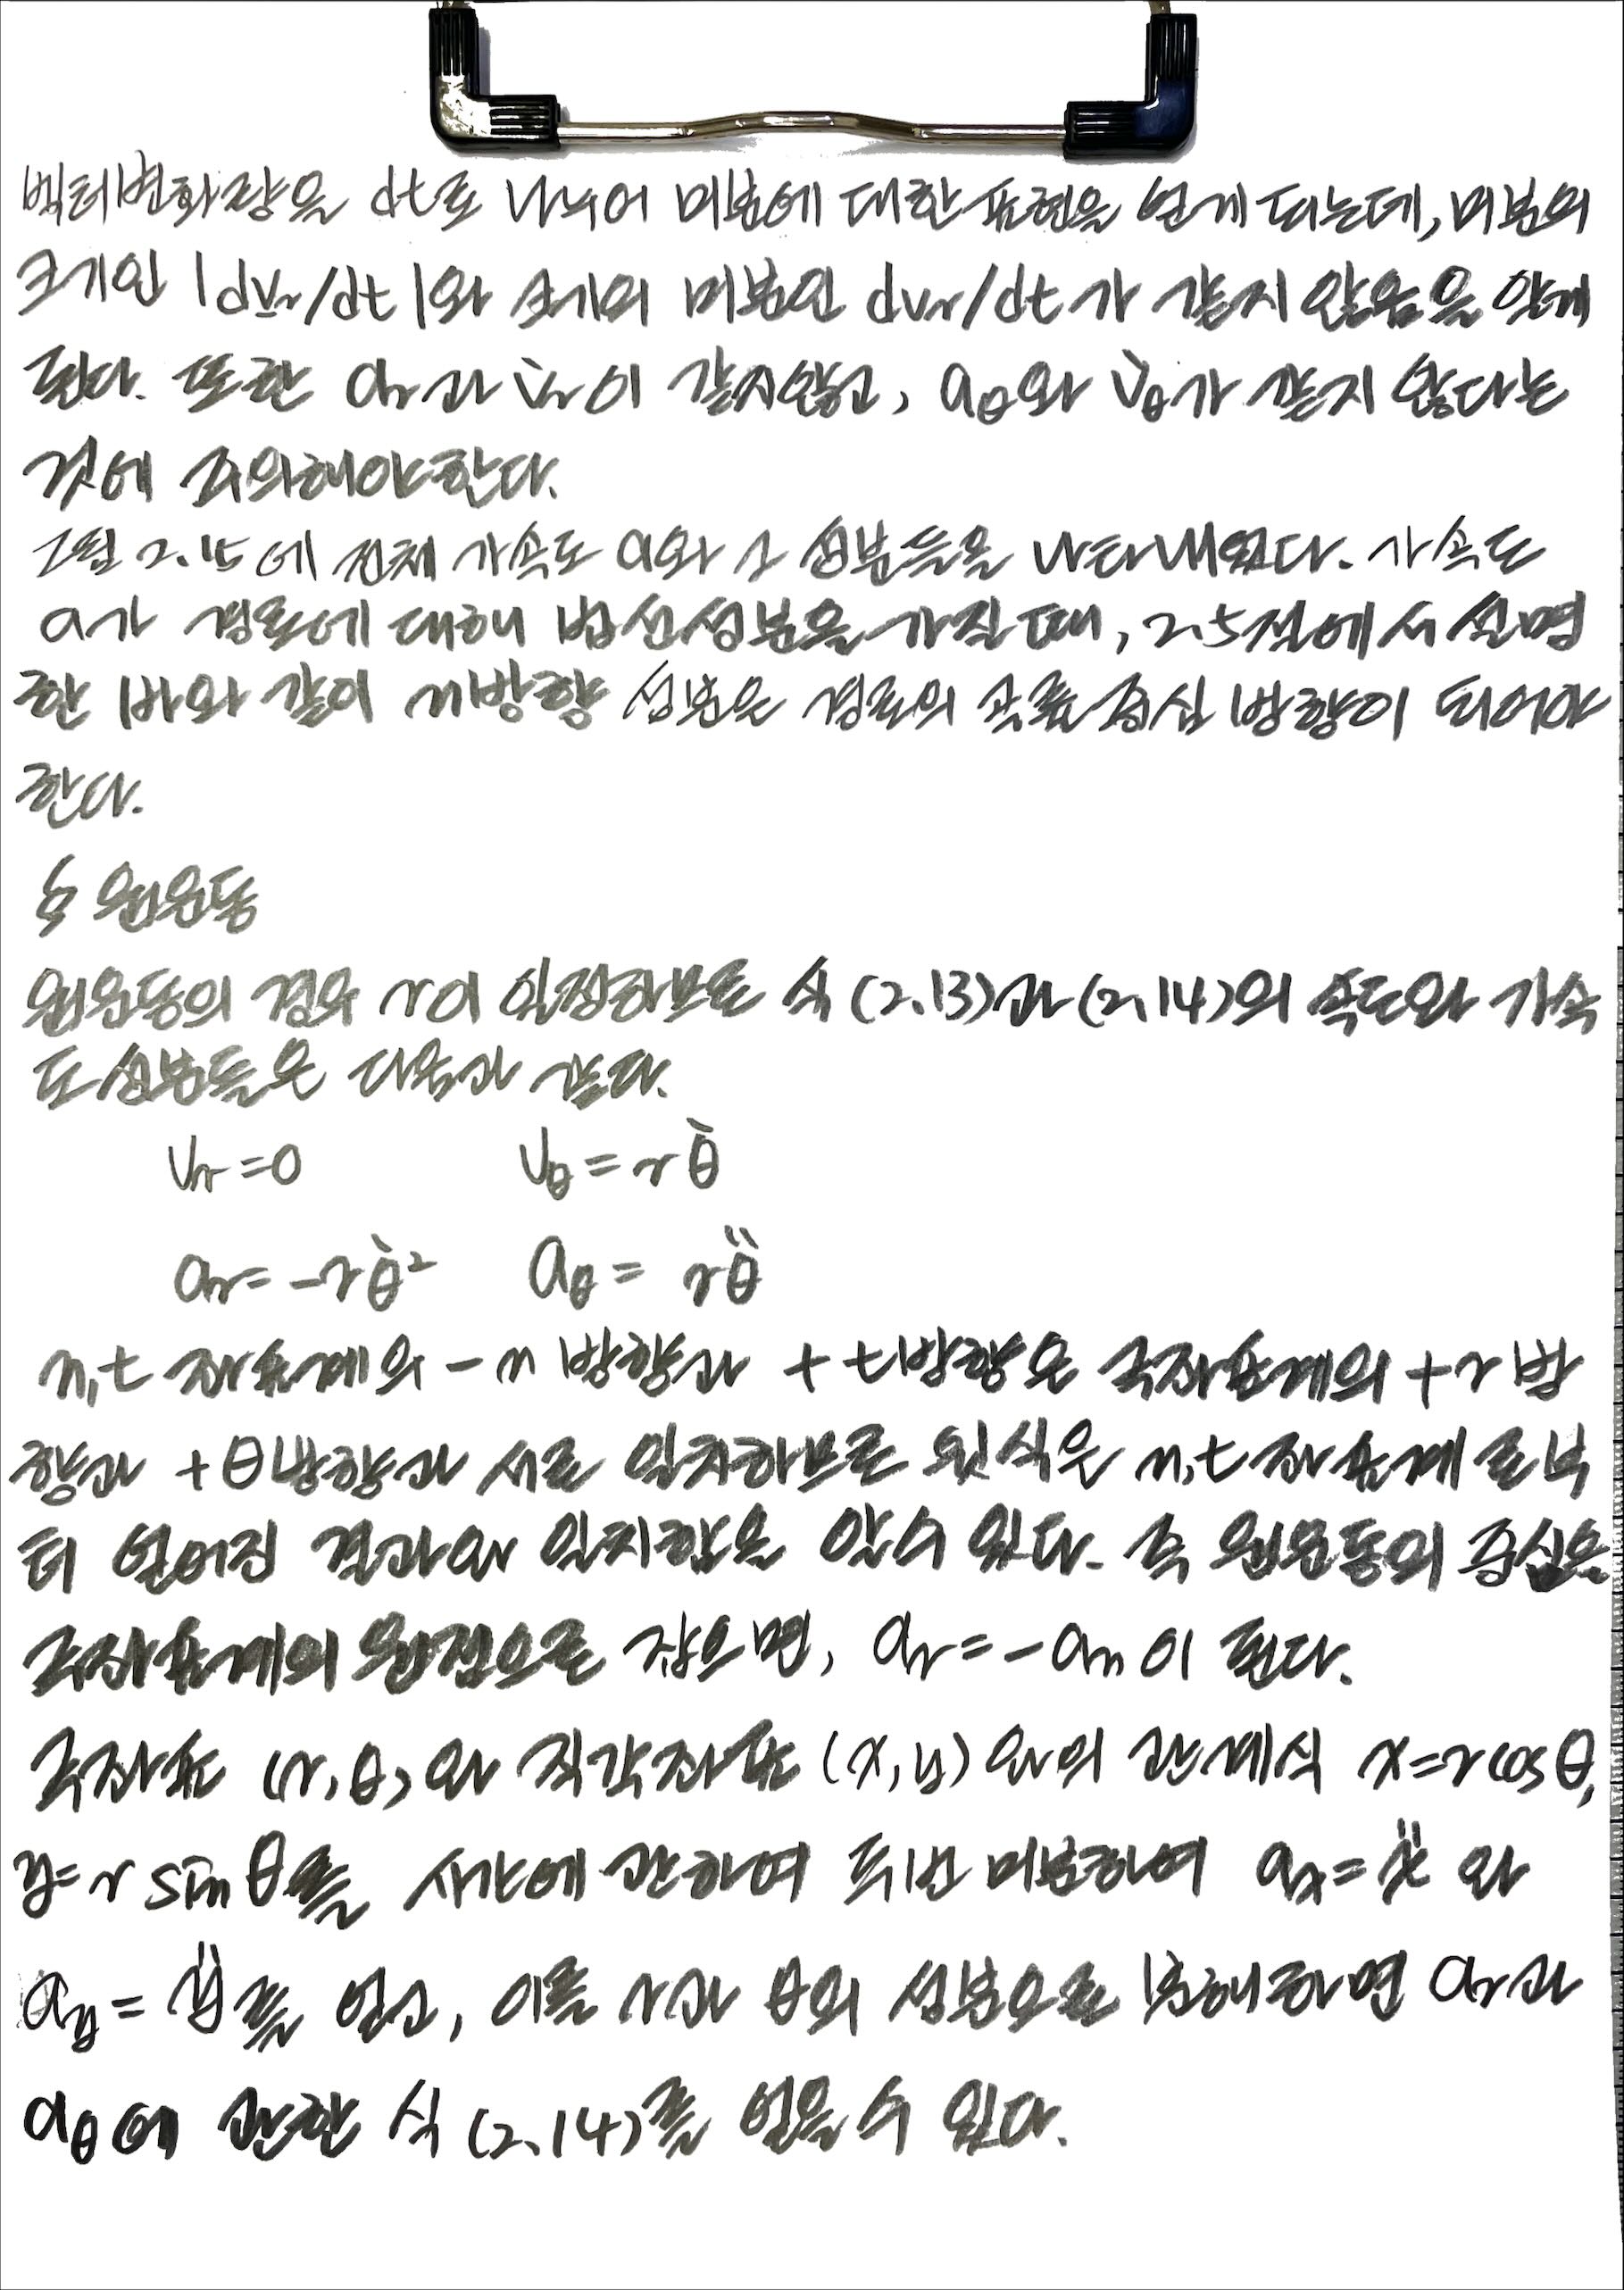 벡터변화량을 dt로 나누어 미분에 대한 표현을 얻게 되는데, 미분의
크기인 |dv̲r/dt|와 크기의 미분인 dvr/dt가 같지 않음을 알게
된다. 또한 ar과 v̇r이 같지않고, aθ와 v̇θ가 같지 않다는
것에 주의해야한다.
그림 2.15에 전체 가속도 a와 그 성분들을 나타내었다. 가속도
a가 경로에 대해 법선성분을 가질 때, 2.5절에서 설명
한 바와 같이 n방향 성분은 경로의 곡률중심 방향이 되어야
한다.
§ 원운동
원운동의 경우 r이 일정하므로 식 (2.13)과 (2.14)의 속도와 가속
도 성분들은 다음과 같다.
vr=0 vθ=rθ̇
ar=-rθ̇² aθ=rθ̈
n,t 좌표계의 -n 방향과 +t방향은 극좌표계의 +r 방
향과 +θ방향과 서로 일치하므로 윗식은 n,t 좌표계로부
터 얻어진 결과와 일치함을 알수 있다. 즉 원운동의 중심을
극좌표계의 원점으로 잡으면, ar=-an이 된다.
극좌표 (r,θ)와 직각좌표 (x,y)와의 관계식 x=r cosθ,
y=r sinθ를 시간에 관하여 두번 미분하여 ax=ẍ 와
ay=ÿ를 얻고, 이를 r과 θ의 성분으로 분해하면 ar과
aθ에 관한 식 (2.14)를 얻을수 있다.